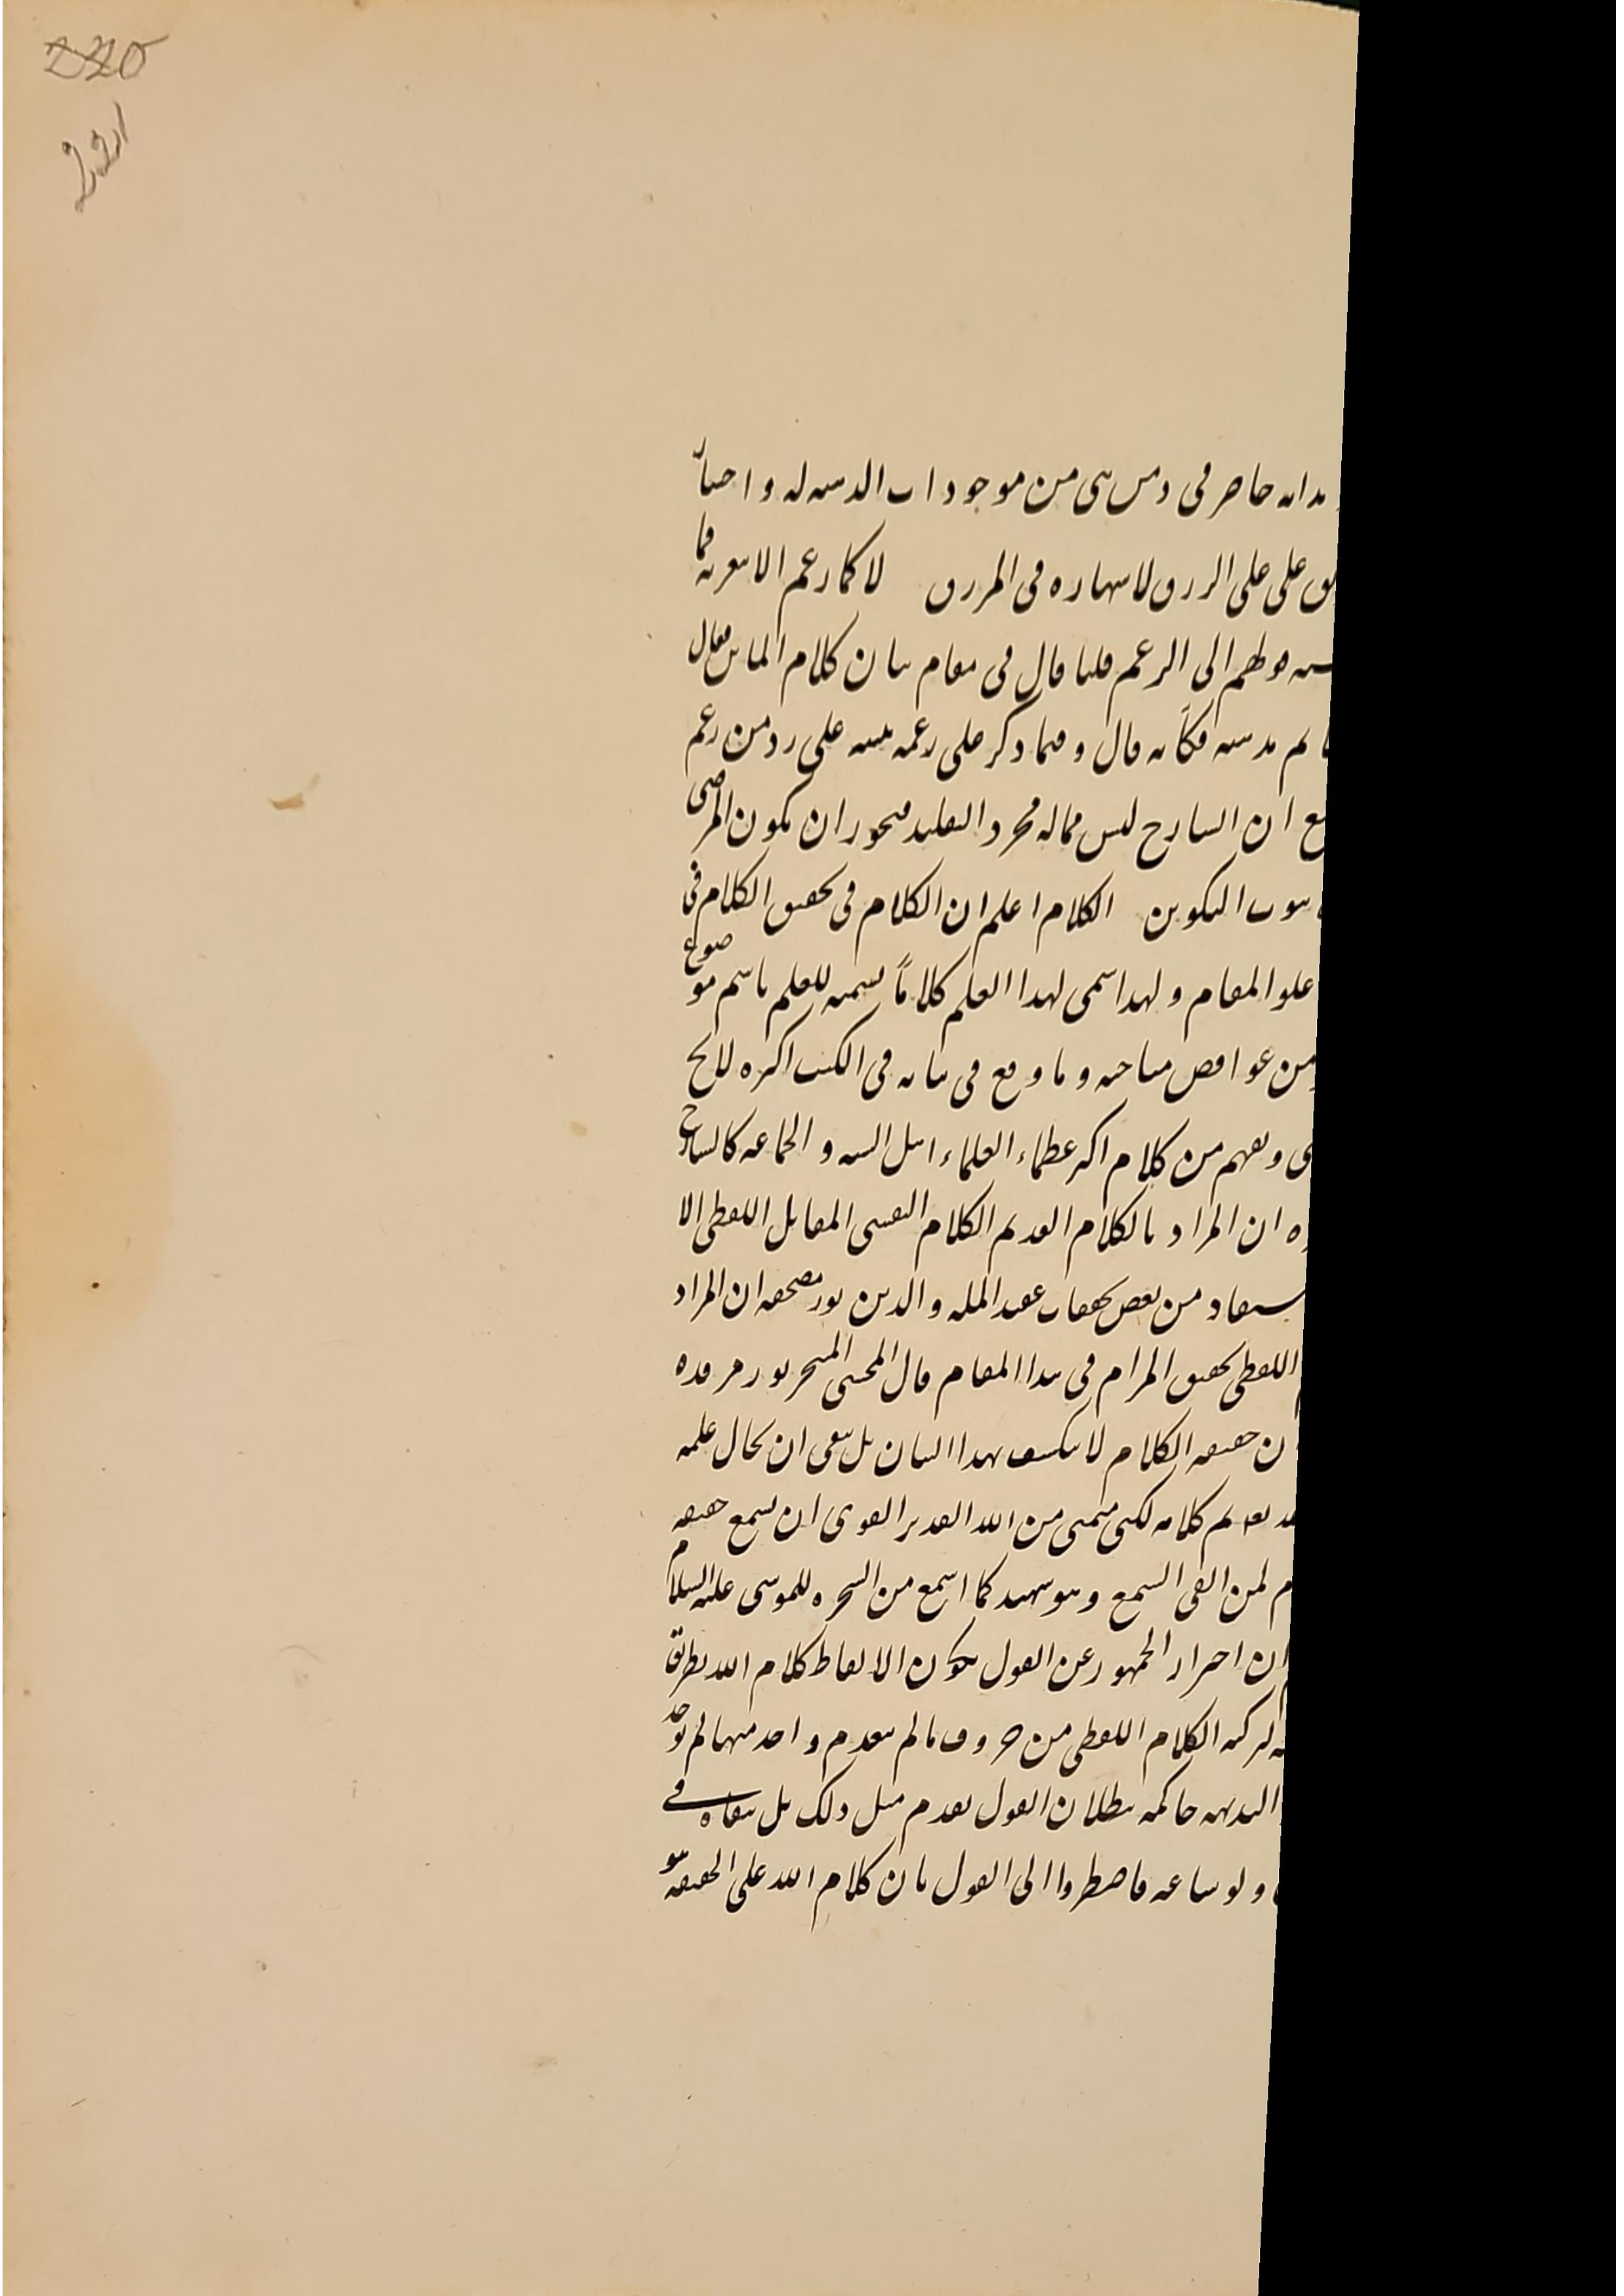 220
221
بدانه حاصر فى دمس سى من موجودات الدسه له و احسا
على على الررق لاسهاره فى المررق لا كما زعم الاسعريه فما
قولهم الى الزعم قلنا قال فى مقام بيان كلام الماتن فقال
لم يدسه فكأنه قال و فيما ذكر على زعمه تنبيه على رد من زعم
مع ان الشارح ليس مماله مجرد التقليد فيجوز ان يكون المرضى
ثبوت التكوين الكلام اعلم ان الكلام فى تحقيق الكلام فى
علو المقام و لهذا سمى لهذا العلم كلاماً تسميه للعلم باسم موضوع
من غوامض مباحثه و ما وقع فى بيانه فى الكتب اكثره لايح
و يفهم من كلام اكثر عظماء العلماء اهل السنه و الجماعه كالشارح
ان المراد بالكلام القديم الكلام النفسى المقابل اللفظى الا
يستفاد من بعض تحقيقات عضد المله و الدين نور مضجعه ان المراد
اللفظى تحقيق المرام فى هذا المقام قال المحشى المتبحر نور مرقده
ان حقيقه الكلام لا ينكشف بهذا البيان بل ينبغى ان يحال علمه
بعد تعديم كلامه لكنى متمنى من الله القدير القوى ان يسمع حقيقه
لمن القى السمع و هو شهيد كما اسمع من الشجره للموسى عليه السلام
ان احتراز الجمهور عن القول بكون الالفاظ كلام الله بطريق
لتركبه الكلام اللفظى من حروف ما لم ينعدم واحد منها لم يوجد
البديهه حاكمه ببطلان القول بقدم مثل ذلك بل ببقاه فى
و لو ساعه فاضطروا الى القول بان كلام الله على الحقيقه هو